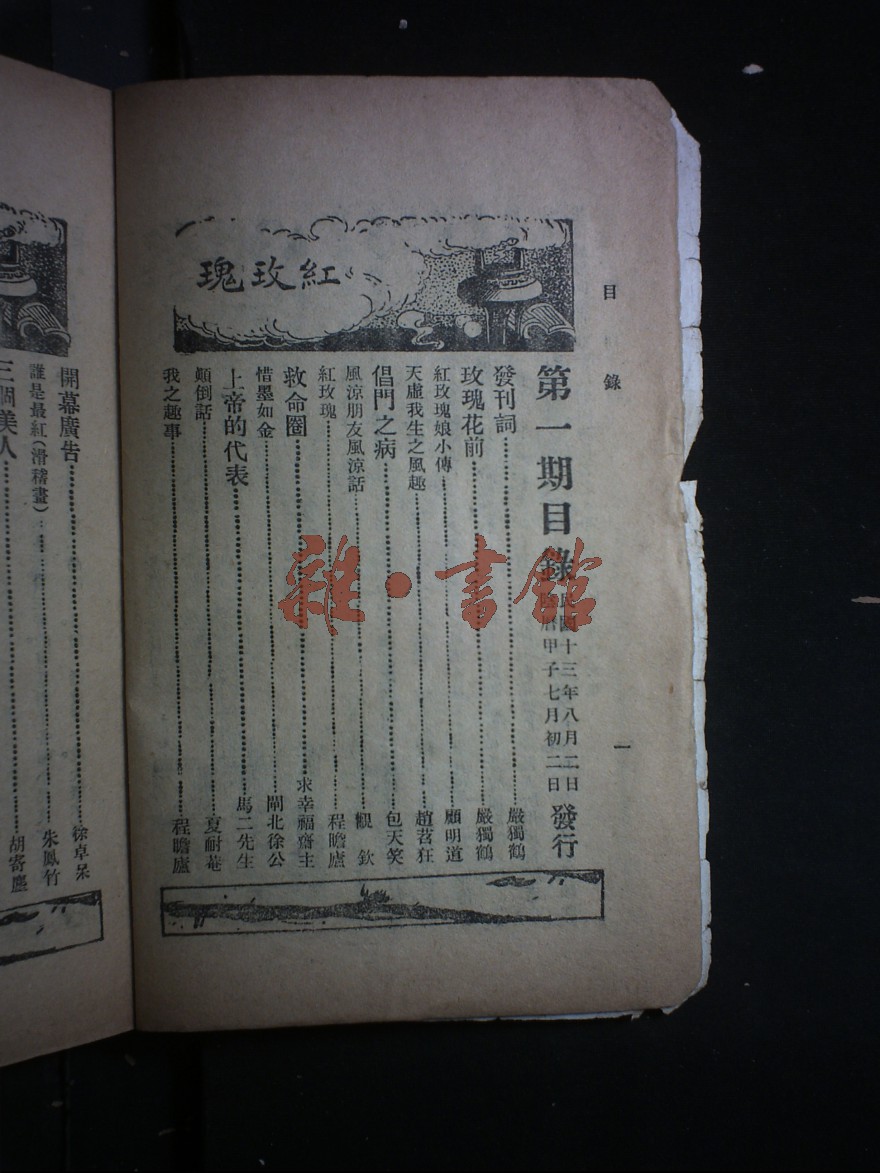 目錄
一
紅玫瑰
第一期目錄
民國十三年八月二日
曆甲子七月初二日
發行
發刊詞 嚴獨鶴
玫瑰花前 嚴獨鶴
紅玫瑰娘小傳 顧明道
天虛我生之風趣 趙苕狂
倡門之病 包天笑
風涼朋友風涼話 觀欽
紅玫瑰 程瞻廬
救命圈 求幸福齋主
惜墨如金 閘北徐公
上帝的代表 馬二先生
顛倒話 夏耐菴
我之趣事 程瞻廬
開幕廣告 徐卓呆
誰是最紅(滑稽畫) 朱鳳竹
三個美人 胡寄塵
雜·書館